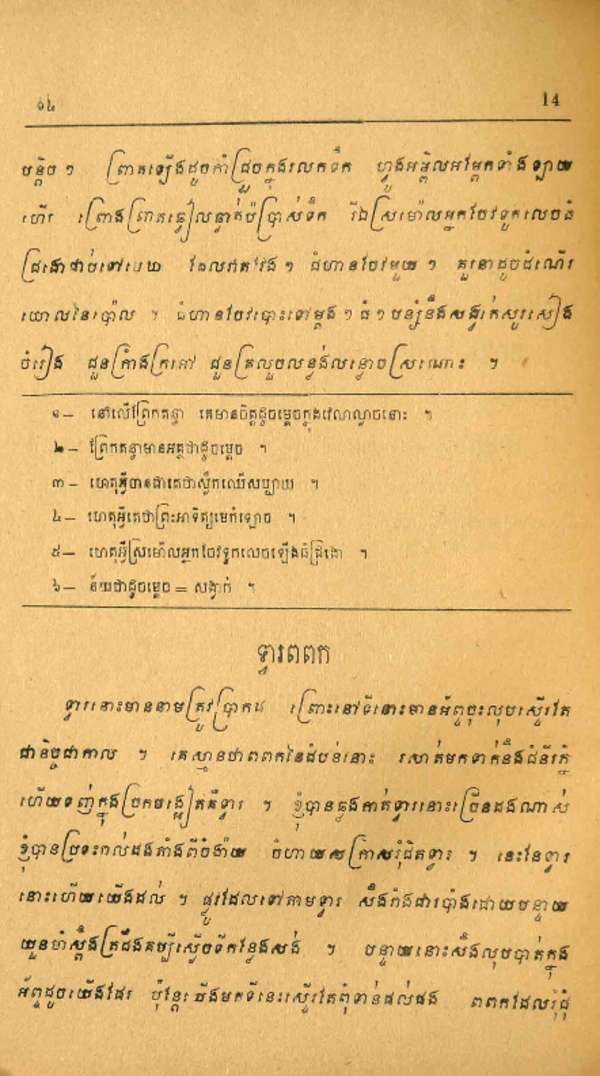 ១៤ 14
បន្តិច ៗ ព្រាតឡើងដូចកាំជ្រួចក្នុងរលកទឹក ហ្វូងអម្ពិលអម្ពែកទាំងឡាយ
ហើរ ព្រោងព្រាតឆ្វៀលឆ្វាត់ប៉ប្រាស់ទឹក រីឯស្រមោលអ្នកចែវទូកលេចធំ
ដ្រងោជាប់ទៅមេឃ ដែលរាត់តវែង ៗ ជំហានចែវមួយ ៗ គួរនាដូចដំណើរ
យោលនៃប៉ោល ។ ជំហានចែវបោះទៅម្ដង ៗ ធំ ៗ បន្សំនឹងសង្វាក់សូរសៀង
ចំរៀង ជួនក្រាំងក្រអៅ ជួនត្រលួចលន្លង់លន្លោចស្រណោះ ។
១— នៅលើព្រែកតន្ធា គេមានចិត្តដូចម្ដេចក្នុងវេលាល្ងាចនោះ ។
២— ព្រែកតន្ធាមានអត្ថថាដូចម្ដេច ។
៣— ហេតុអ្វីបានជាគេថាស្លឹកឈើសប្បាយ ។
៤— ហេតុអ្វីគេថាព្រះអាទិត្យមេកំឡោច ។
៥— ហេតុអ្វីស្រមោលអ្នកចែវទូកលេចឡើងធំដ្រងោ ។
៦— ន័យថាដូចម្ដេច = សង្វាក់ ។
ទ្វារពពក
ទ្វារនោះមាននាមត្រូវប្រាកដ ព្រោះនៅទីនោះមានអ័ព្ទចុះលុបស្ទើរតែ
ជានិច្ចជាកាល ។ គេស្មានថាពពកនៃដំបន់នោះ រសាត់មកទាក់នឹងជំនីរភ្នំ
ហើយទញ់ក្នុងច្រកចង្អៀតគឺទ្វារ ។ ខ្ញុំបានឆ្លងកាត់ទ្វារនោះច្រើនដងណាស់
ខ្ញុំបានប្រទះរាល់ដងតាំងពីចំងាយ ចំហាយសក្រាសរុំជិតទ្វារ ។ នេះនែទ្វារ
នោះហើយយើងដល់ ។ ផ្លូវដែលទៅតាមទ្វារ ស៊ឹងកំងជារបាំងដោយបន្ទាយ
យួនចាំស្ដឹងត្រដឹងតម្បីស្ទើចទឹកខ្វែងសង់ ។ បន្ទាយនោះស៊ឹងលុបបាត់ក្នុង
អ័ព្ទដូចយើងដែរ ប៉ុន្តែយើងមកទីនេះស្ទើរតែពុំទាន់ផល់ផង ពពកដែលរុំជុំ